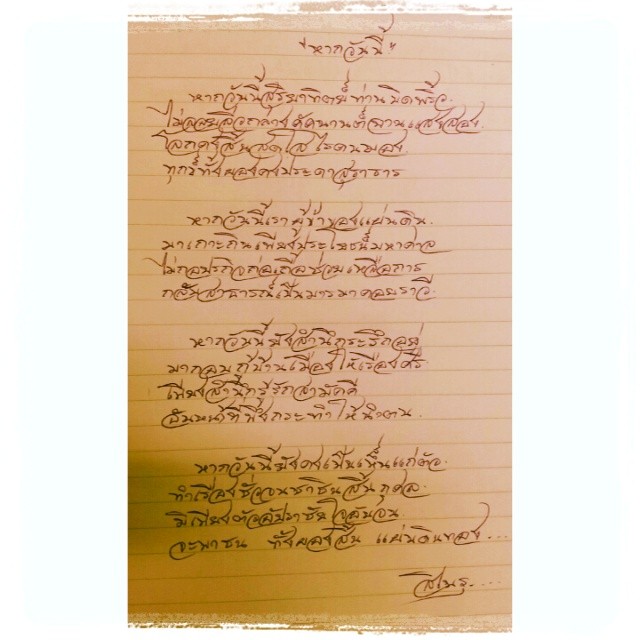 "หากวันนี้"
หากวันนี้สุริยาทิตย์ท่านบิดพริ้ว.
แสงส่อง.
โลกคงสิ้นสดใสไร้คนมอง.
ทุกข์ทั้งผองคงประดาสุธาธาร
หากวันนี้เราผู้ข้าของแผ่นดิน.
มาเกาะกินเพียงประโยชน์มหาศาล
ไม่กอปรกิจก่อเกื้อช่วยเหลือการ
กลับสาธารณ์เป็นมารมาคอยราวี.
หากวันนี้ยังสำนึกระรึกอยู่
มากอบกู้บ้านเมืองให้เรืองศรี
เพียงสำนึกรู้รักสามัคคี
อันหน้าที่พึงกระทำให้นำตน.
หากวันนี้ยังคงเป็นเห็นแก่ตัว.
ทำเรื่องชั่วจนชาชินสิ้นกุศล.
มีเพียงตัว
จะพาชน ทั้งผองสิ้น แผ่นดินทอง...